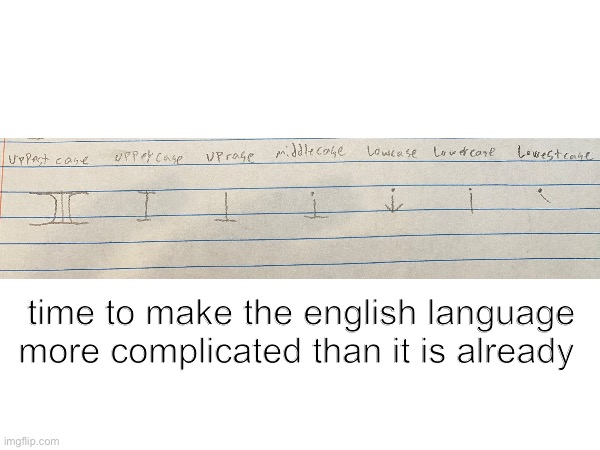 uppest case uppercase uprase middlecase lowcase lowercase lowestcase
time to make the english language
more complicated than it is already
imgflip.com